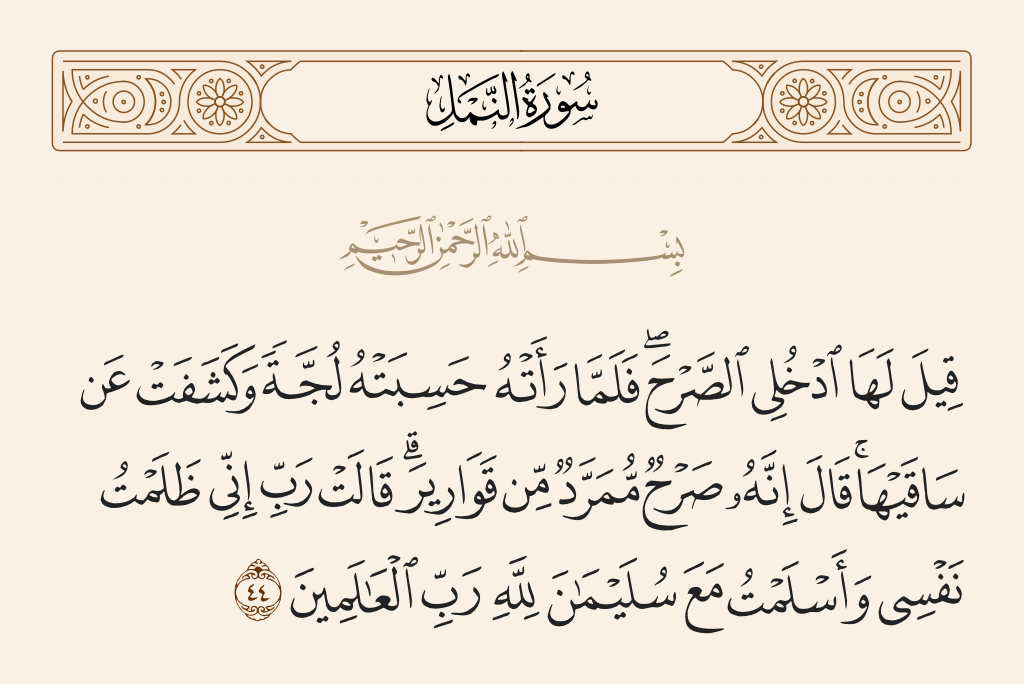 سُورَةُ النَّمۡلِ
بِسۡمِ ٱللَّهِ ٱلرَّحۡمَٰنِ ٱلرَّحِيمِ
قِيلَ لَهَا ٱدۡخُلِي ٱلصَّرۡحَۖ فَلَمَّا رَأَتۡهُ حَسِبَتۡهُ لُجَّةٗ وَكَشَفَتۡ عَن
سَاقَيۡهَاۚ قَالَ إِنَّهُۥ صَرۡحٞ مُّمَرَّدٞ مِّن قَوَارِيرَۗ قَالَتۡ رَبِّ إِنِّي ظَلَمۡتُ
نَفۡسِي وَأَسۡلَمۡتُ مَعَ سُلَيۡمَٰنَ لِلَّهِ رَبِّ ٱلۡعَٰلَمِينَ ٤٤